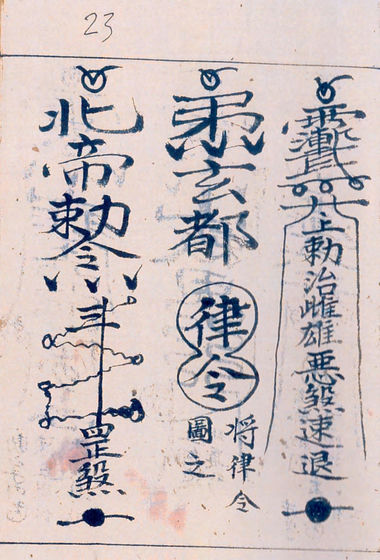 23
上勅治雌雄悪煞速退
玄都
律令
将律令
圖之
北帝勅令
罡煞